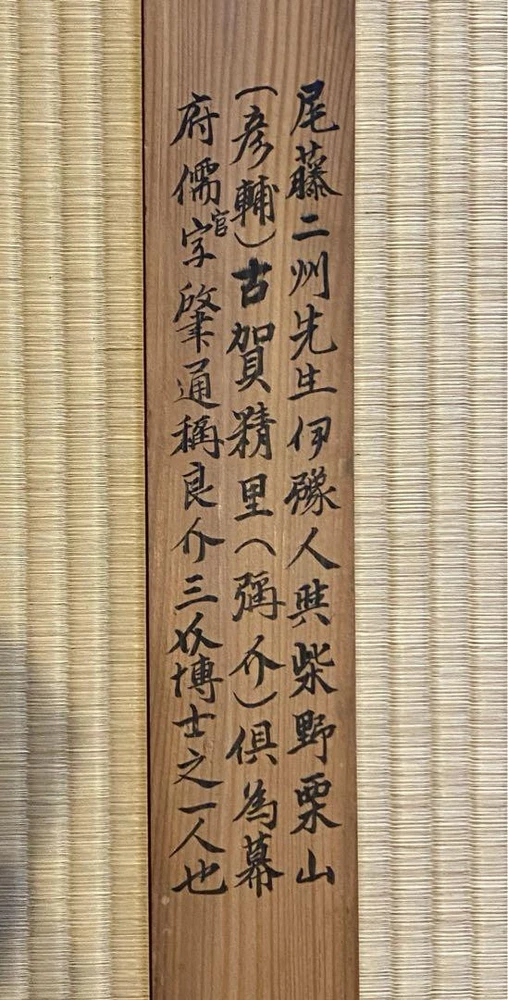 尾藤二州先生伊豫人與柴野栗山
(彦輔)古賀精里(彌介)倶為幕
府儒官字肇通稱良介三介博士之一人也